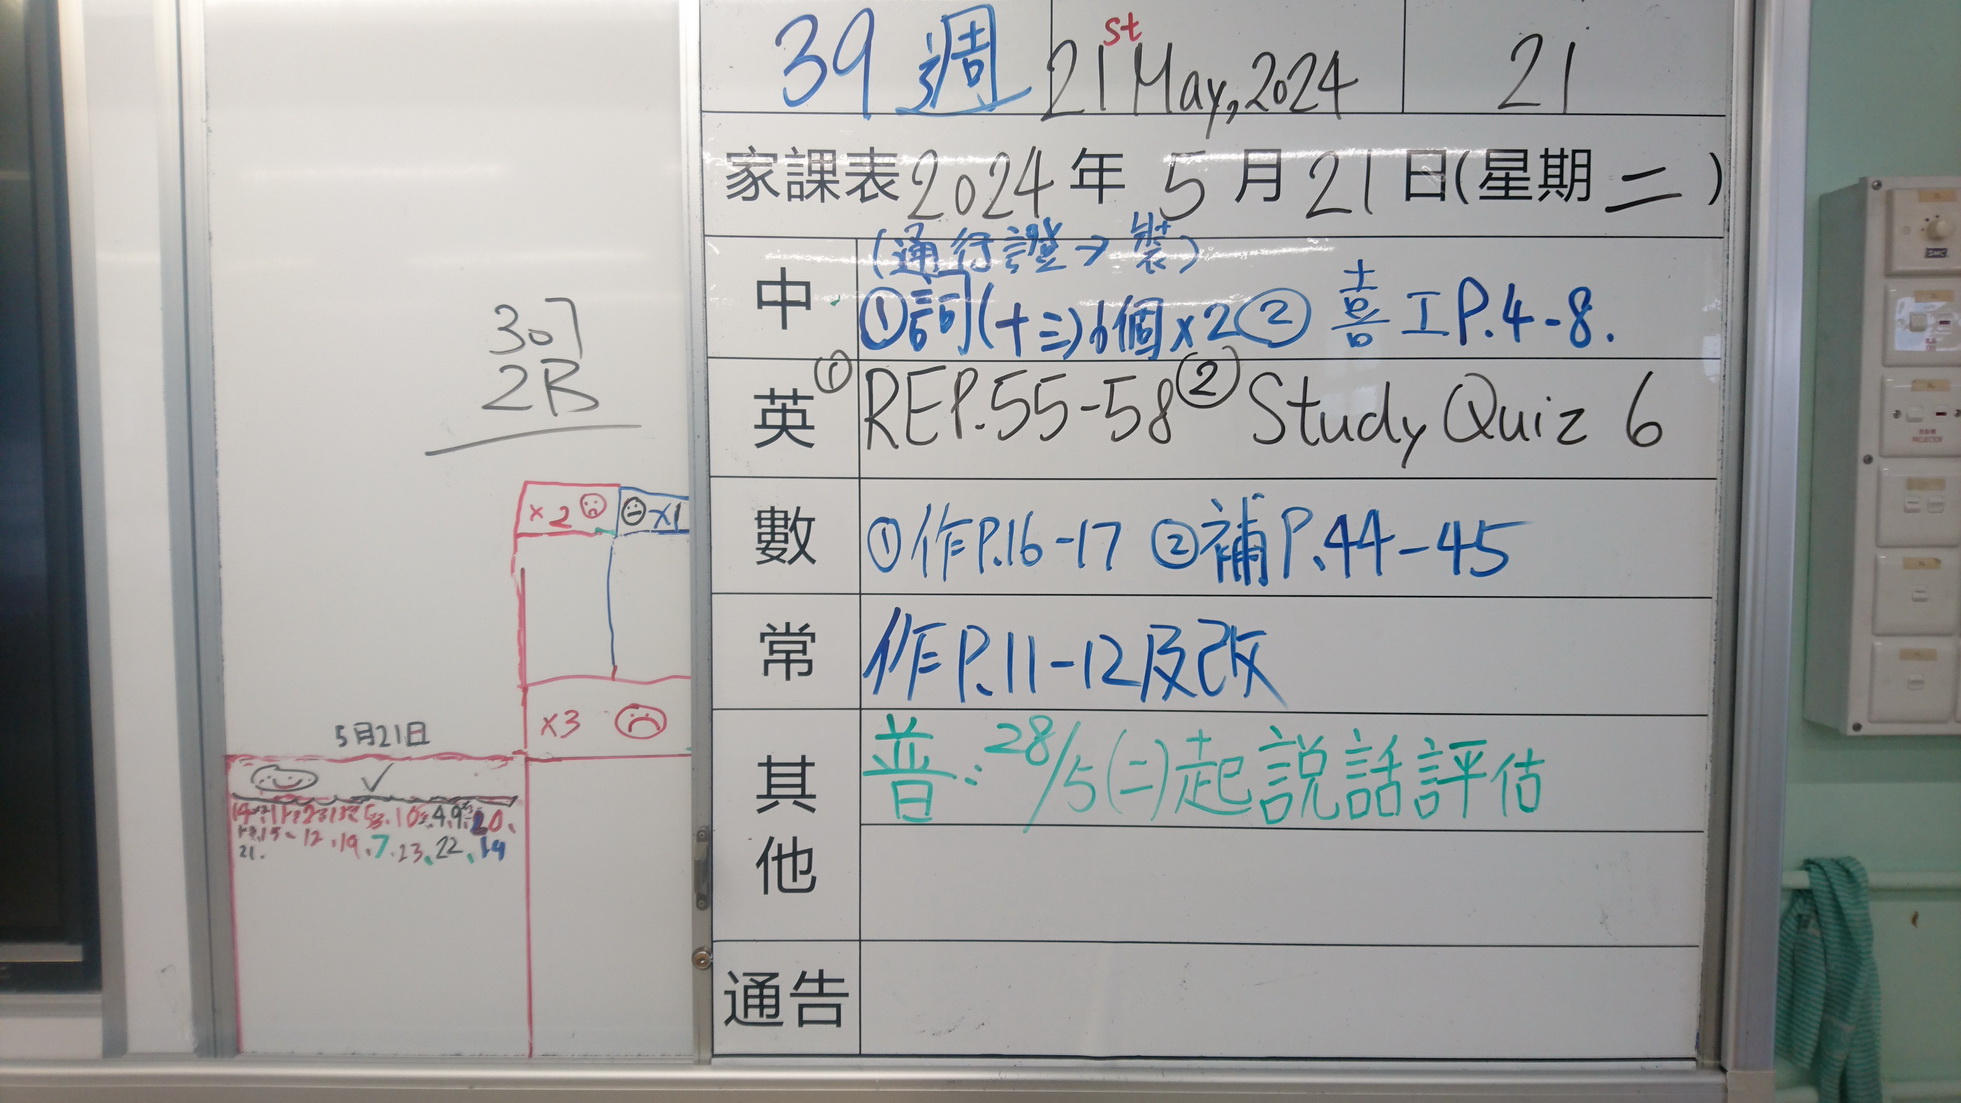 39 週 21st May, 2024 21
家課表 2024 年 5 月 21 日(星期二)
(通行證→裝)
中 ①詞(十三)6個x2 ② 喜工P.4-8.
英 ①REP.55-58 ② Study Quiz 6
數 ①作P.16-17 ②補P.44-45
常 作P.11-12及改
其他 普:28/5(二)起說話評估
通告
307
2B
x2 x1
x3
5月21日
✓
12.19.7.23.22.14
21.